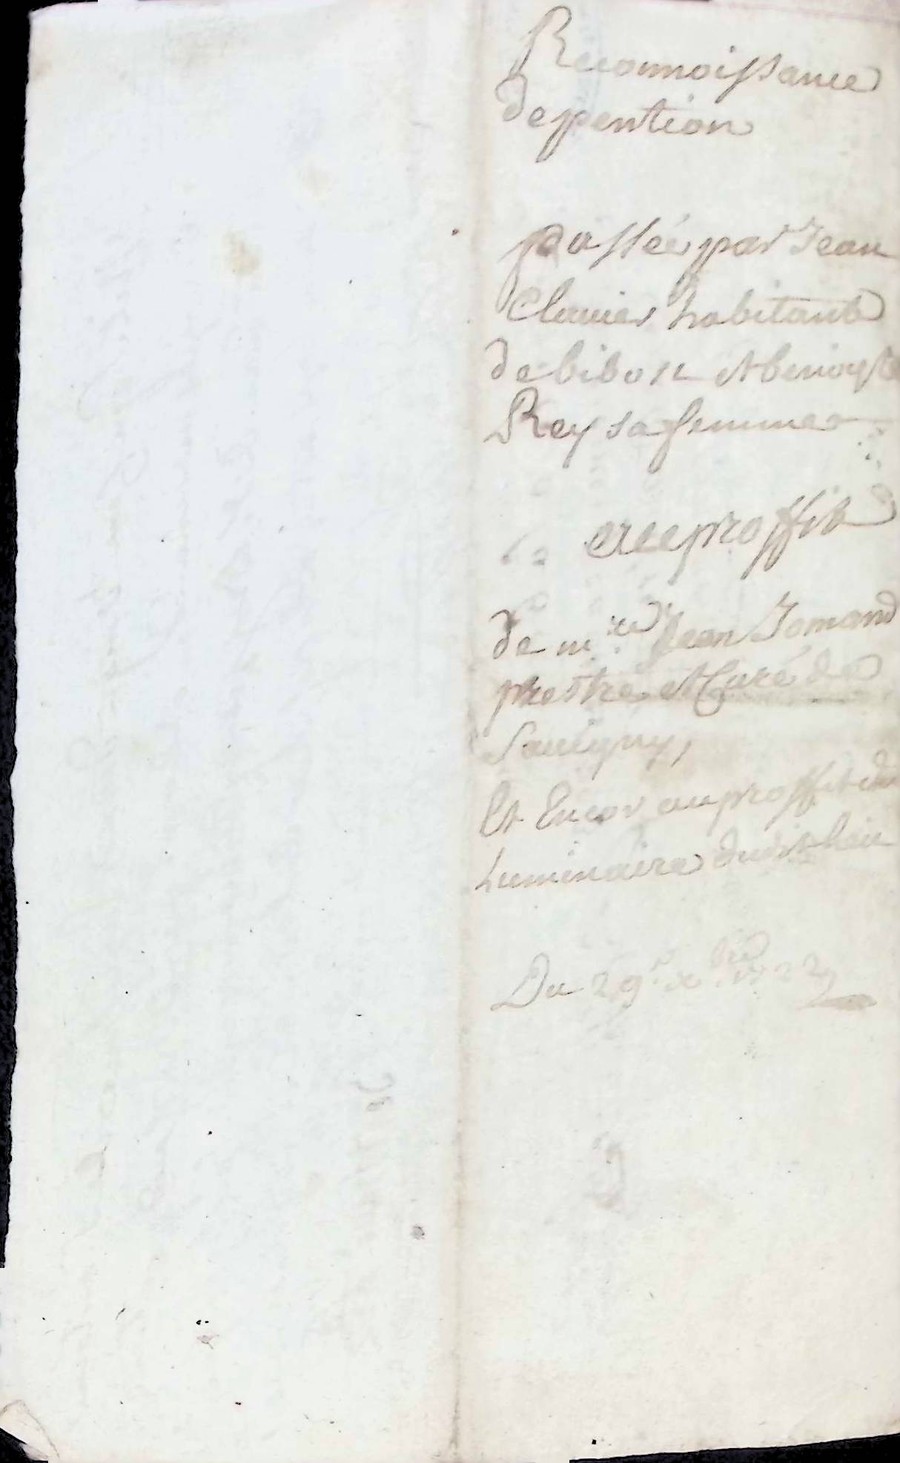 Reconnoissance
de pention
passée par Jean
Clavier habitant
de bibost et benoiste
Rey sa femme
au proffit
de m.re Jean Jomand
prestre et Curé de
Savigny,
Et Encor au proffit du
Luminaire dudit lieu
Du 29e xbre 1722